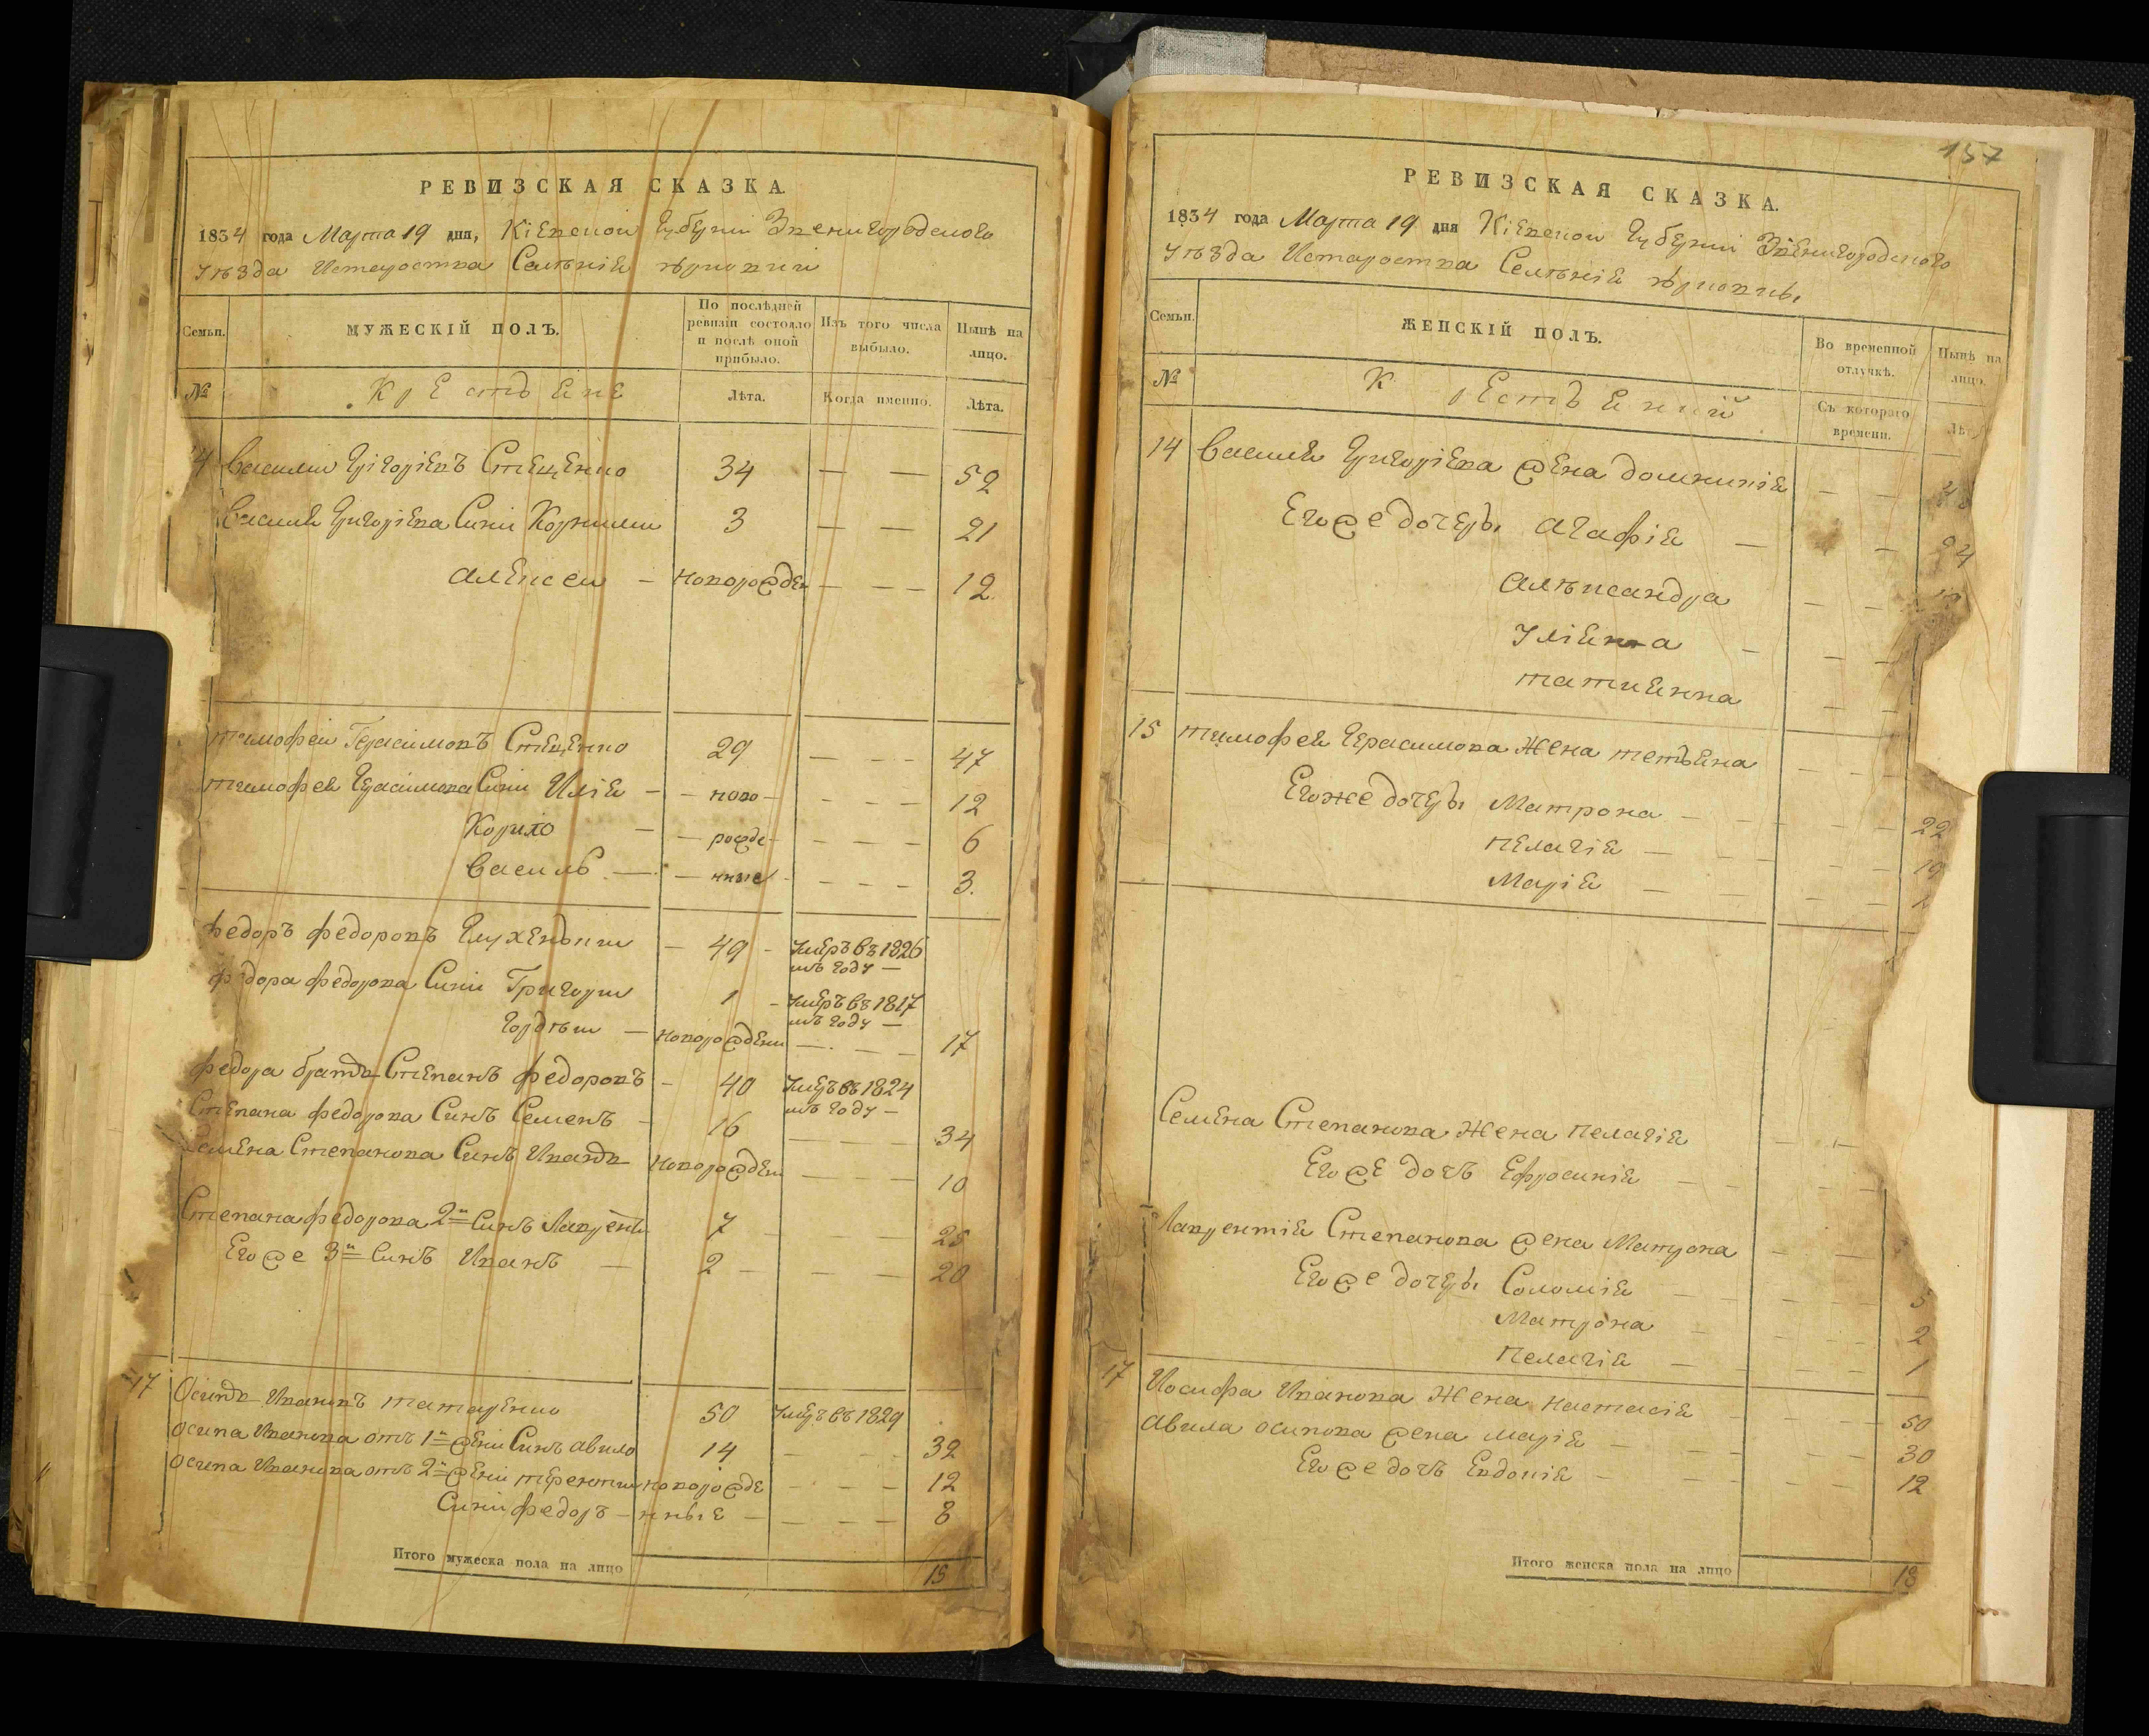 РЕВИЗСКАЯ СКАЗКА.
1834 года Марта 19 дня, Кіевской Губерніи Звенигородского
уѣзда Истароства Селѣнія
Семьи.
МУЖЕСКІЙ ПОЛЪ.
По послѣдней ревизіи состояло и послѣ оной прибыло.
Изъ того числа выбыло.
Нынѣ на лицо.
№
Крестьяне
Лѣта.
Когда именно.
Лѣта.
14 Василий Григоріевъ Стеценко 34 — — 52
Василя Григоріева Сини Корнилий 3 — — 21
Алексей — новорожден — — — 12
Тимофей Герасимовъ Стеценко 29 — — — 47
Тимофея Герасимова Сини Илія — — ново — — — — 12
Корило — — рожде — — — — 6
Василь — — нные — — — — 3.
Федоръ Федоровъ — 49 — Умеръ въ 1826
мъ году —
Федора Федорова Сини Григорий 1 — Умеръ въ 1817
мъ году —
Гордѣй — новорожденн — — — 17
Федора братъ Степанъ Федоровъ — 40 Умеръ въ 1824
мъ году —
Степана Федорова Синъ Семенъ — 16 — — — 34
Семена Степанова Синъ Иванъ новорожден — — — 10
Степана Федорова 2й Синъ Лаврентій 7 — — — 25
Егоже 3й Синъ Иванъ — 2 — — — 20
17 Осипъ Ивановъ Татаренко 50 Умеръ въ 1829
Осипа Иванова отъ 1й жени Синъ Авило 14 — — 32
Осипа Иванова отъ 2й жени Терентий новорожде — — — 12
Сини Федоръ — нные — — — — 8
Итого мужеска пола на лицо 15
157
РЕВИЗСКАЯ СКАЗКА.
1834 года Марта 19 дня Кіевской Губерніи Звенигородского
уѣзда Истароства Селѣнія
Семьи.
ЖЕНСКІЙ ПОЛЪ.
Во временной отлучкѣ.
Нынѣ на лицо.
№
Крестьяний
Съ котораго времени.
14 Василя Григоріева жена Домникія — —
Егоже дочеры Агафія — — 24
Алѣксандра — —
Уліянна — — —
Татиянна — —
15 Тимофея Герасимова Жена Тетьяна — —
Егоже дочеры Матрона — — — — — 22
Пелагія — — — — — 19
Марія — — — —
Семена Степанова Жена Пелагія — —
Егоже дочь Ефросинія — —
Лаврентія Степанова жена Матрона — —
Егоже дочеры Соломія — — — — 5
Матрона — — — — 2
Пелагія — — — — 1
17 Иосифа Иванова Жена Настасія — — — — 50
Авила Осипова жена Марія — — — — — 30
Егоже дочь Евдокія — — — — — 12
Итого женска пола на лицо 18